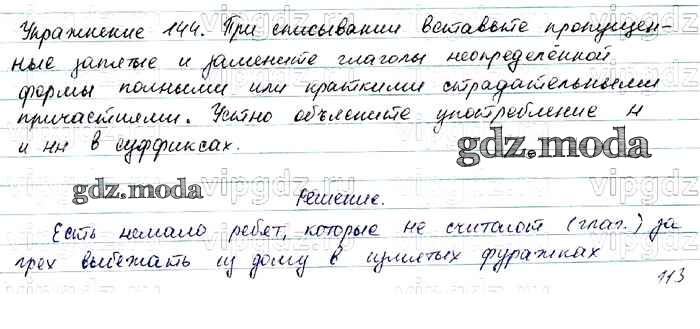 Упражнение 144. При списывании вставьте пропущен-
ные запятые и замените глаголы неопределённой
формы полными или краткими страдательными
причастиями. Устно объясните употребление н
и нн в суффиксах.
gdz.moda
gdz.moda
Решение.
Есть немало ребят, которые не считают (глаг.) за
грех выбежать из дому в измятых фуражках
113